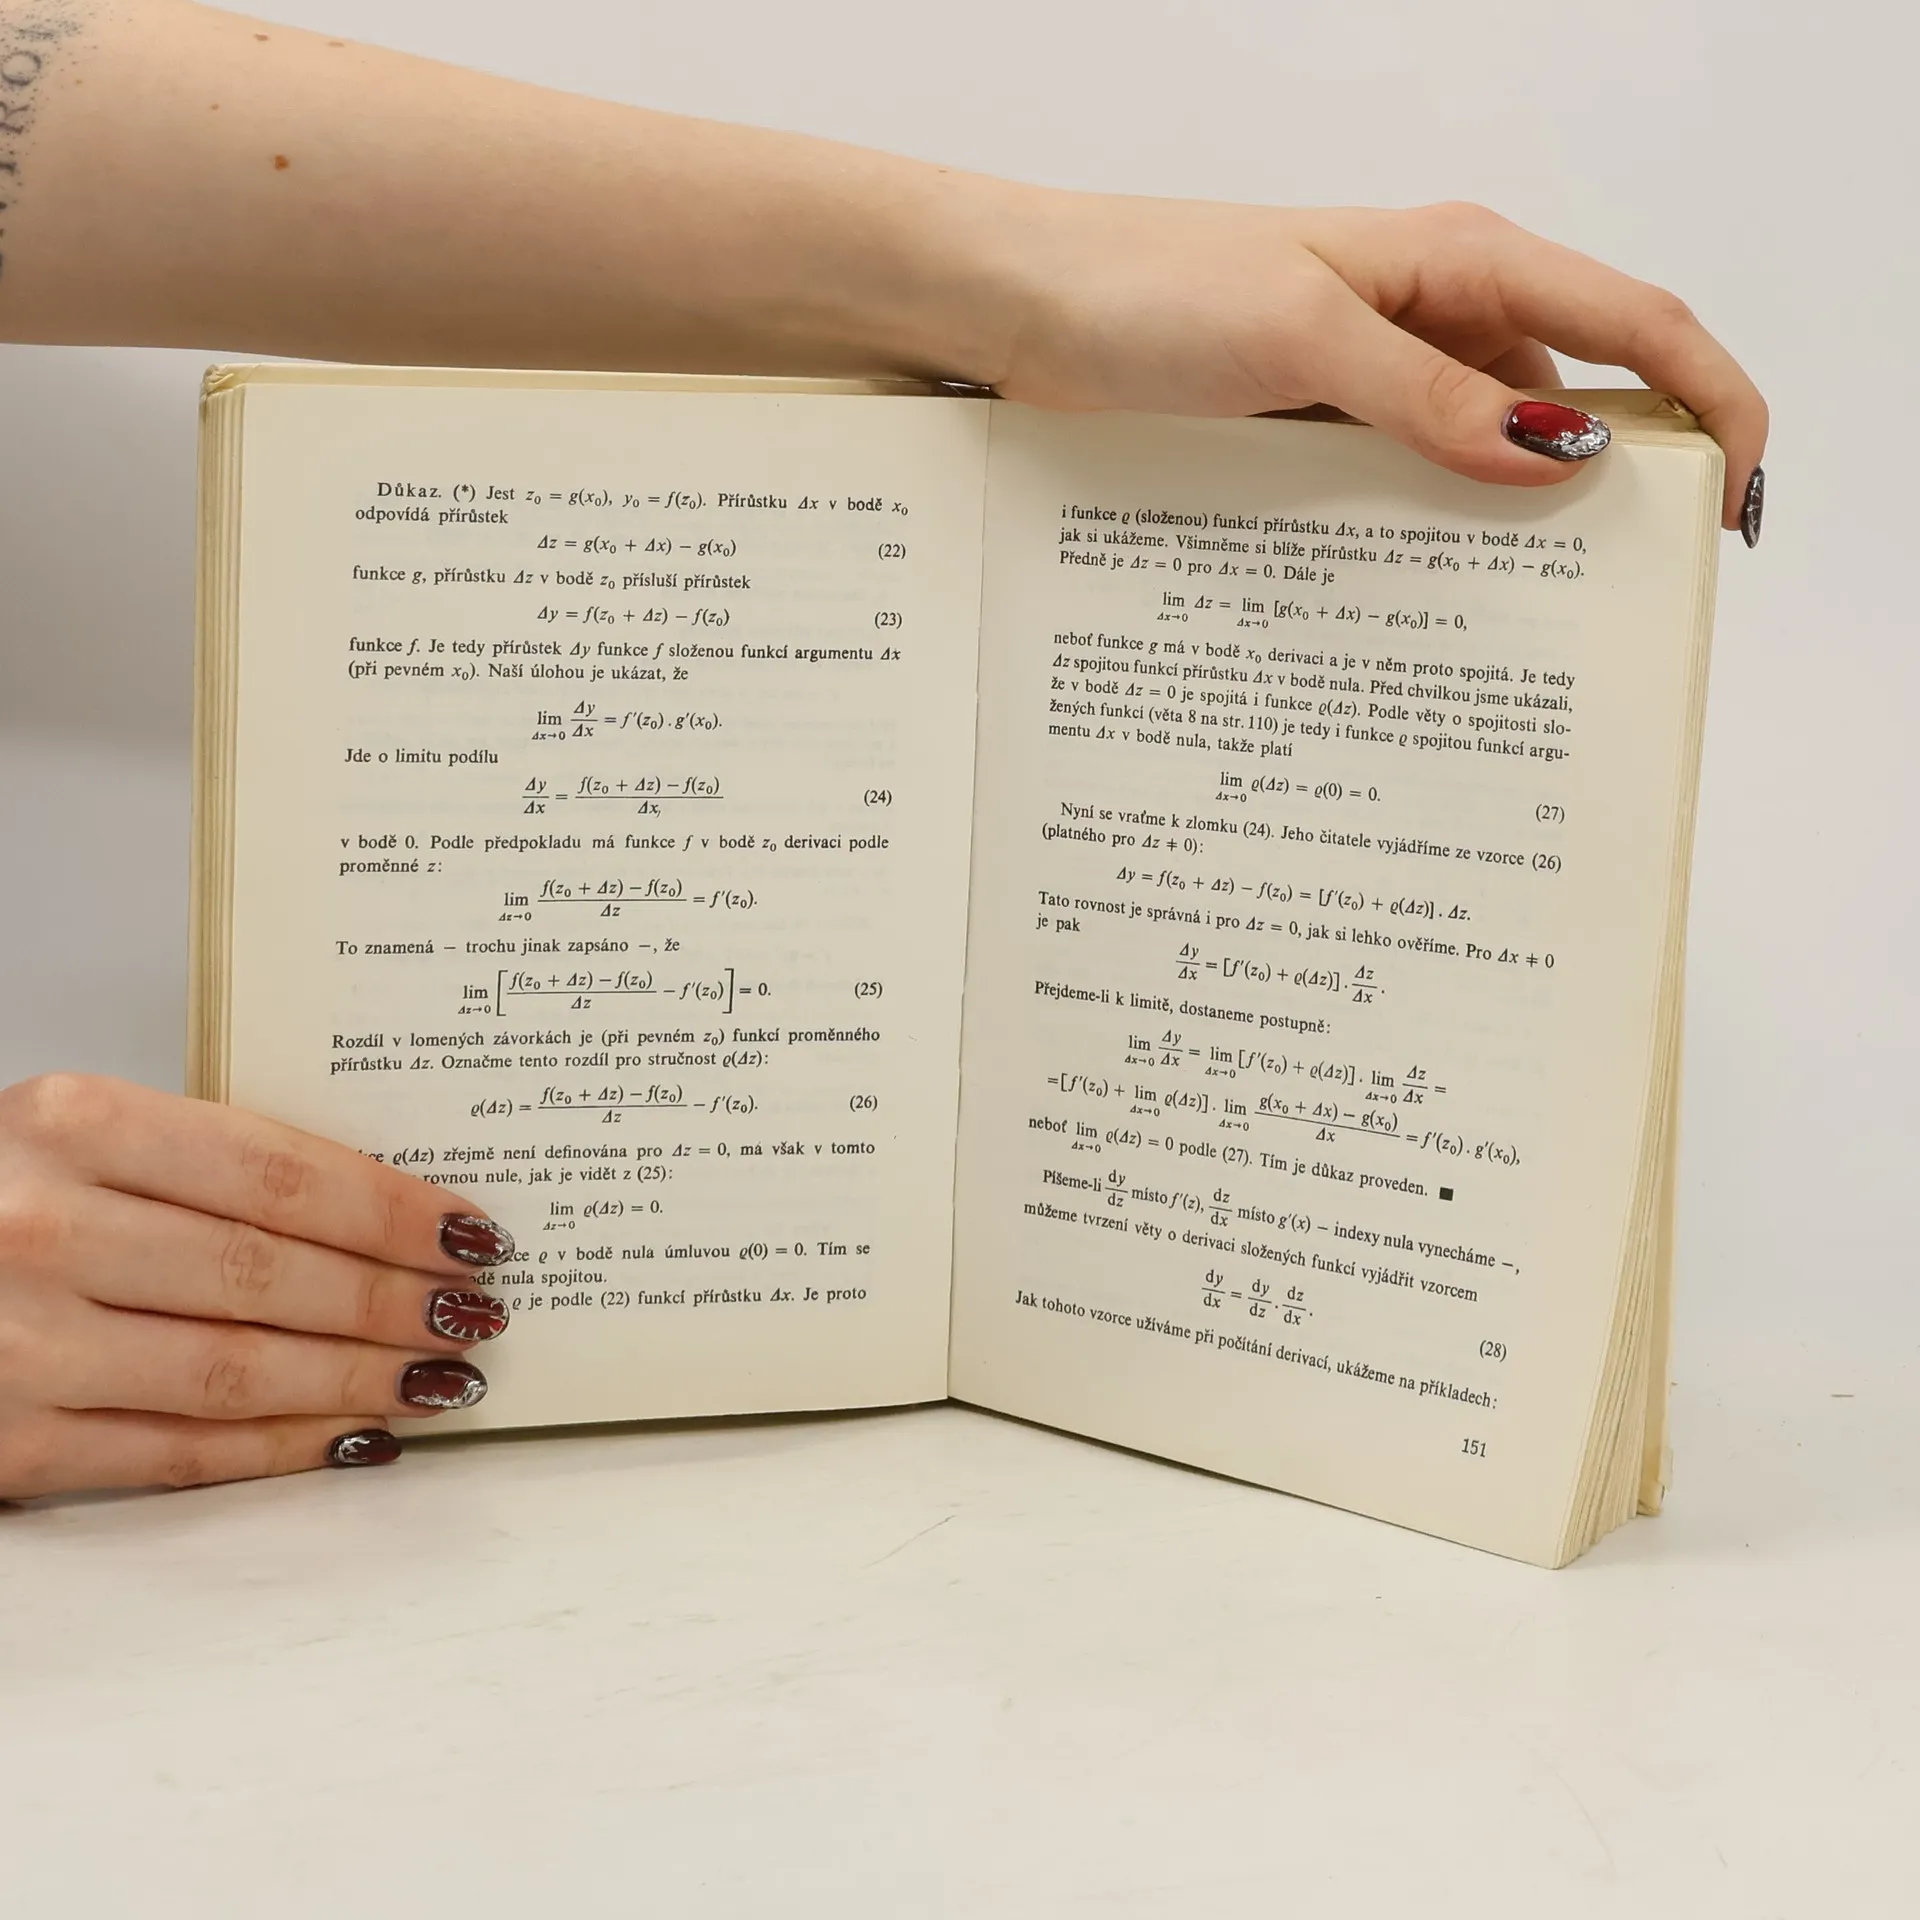 Důkaz. (*) Jest z₀ = g(x₀), y₀ = f(z₀). Přírůstku Δx v bodě x₀
odpovídá přírůstek
Δz = g(x₀ + Δx) − g(x₀) (22)
funkce g, přírůstku Δz v bodě z₀ přísluší přírůstek
Δy = f(z₀ + Δz) − f(z₀) (23)
funkce f. Je tedy přírůstek Δy funkce f složenou funkcí argumentu Δx
(při pevném x₀). Naší úlohou je ukázat, že
lim_{Δx→0} Δy/Δx = f′(z₀) . g′(x₀).
Jde o limitu podílu
Δy/Δx = (f(z₀ + Δz) − f(z₀))/Δx, (24)
v bodě 0. Podle předpokladu má funkce f v bodě z₀ derivaci podle
proměnné z:
lim_{Δz→0} (f(z₀ + Δz) − f(z₀))/Δz = f′(z₀).
To znamená − trochu jinak zapsáno −, že
lim_{Δz→0} [(f(z₀ + Δz) − f(z₀))/Δz − f′(z₀)] = 0. (25)
Rozdíl v lomených závorkách je (při pevném z₀) funkcí proměnného
přírůstku Δz. Označme tento rozdíl pro stručnost ϱ(Δz):
ϱ(Δz) = (f(z₀ + Δz) − f(z₀))/Δz − f′(z₀). (26)
ϱ(Δz) zřejmě není definována pro Δz = 0, má však v tomto
rovnou nule, jak je vidět z (25):
lim_{Δz→0} ϱ(Δz) = 0.
ϱ v bodě nula úmluvou ϱ(0) = 0. Tím se
nula spojitou.
ϱ je podle (22) funkcí přírůstku Δx. Je proto
i funkce ϱ (složenou) funkcí přírůstku Δx, a to spojitou v bodě Δx = 0,
jak si ukážeme. Všimněme si blíže přírůstku Δz = g(x₀ + Δx) − g(x₀).
Předně je Δz = 0 pro Δx = 0. Dále je
lim_{Δx→0} Δz = lim_{Δx→0} [g(x₀ + Δx) − g(x₀)] = 0,
neboť funkce g má v bodě x₀ derivaci a je v něm proto spojitá. Je tedy
Δz spojitou funkcí přírůstku Δx v bodě nula. Před chvilkou jsme ukázali,
že v bodě Δz = 0 je spojitá i funkce ϱ(Δz). Podle věty o spojitosti slo-
žených funkcí (věta 8 na str. 110) je tedy i funkce ϱ spojitou funkcí argu-
mentu Δx v bodě nula, takže platí
lim_{Δx→0} ϱ(Δz) = ϱ(0) = 0. (27)
Nyní se vraťme k zlomku (24). Jeho čitatele vyjádříme ze vzorce (26)
(platného pro Δz ≠ 0):
Δy = f(z₀ + Δz) − f(z₀) = [f′(z₀) + ϱ(Δz)] . Δz.
Tato rovnost je správná i pro Δz = 0, jak si lehko ověříme. Pro Δx ≠ 0
je pak
Δy/Δx = [f′(z₀) + ϱ(Δz)] . Δz/Δx .
Přejdeme-li k limitě, dostaneme postupně:
lim_{Δx→0} Δy/Δx = lim_{Δx→0} [f′(z₀) + ϱ(Δz)] . lim_{Δx→0} Δz/Δx =
=[f′(z₀) + lim_{Δx→0} ϱ(Δz)] . lim_{Δx→0} (g(x₀ + Δx) − g(x₀))/Δx = f′(z₀) . g′(x₀),
neboť lim_{Δx→0} ϱ(Δz) = 0 podle (27). Tím je důkaz proveden. ■
Píšeme-li dy/dz místo f′(z), dz/dx místo g′(x) − indexy nula vynecháme −,
můžeme tvrzení věty o derivaci složených funkcí vyjádřit vzorcem
dy/dx = dy/dz . dz/dx . (28)
Jak tohoto vzorce užíváme při počítání derivací, ukážeme na příkladech:
151